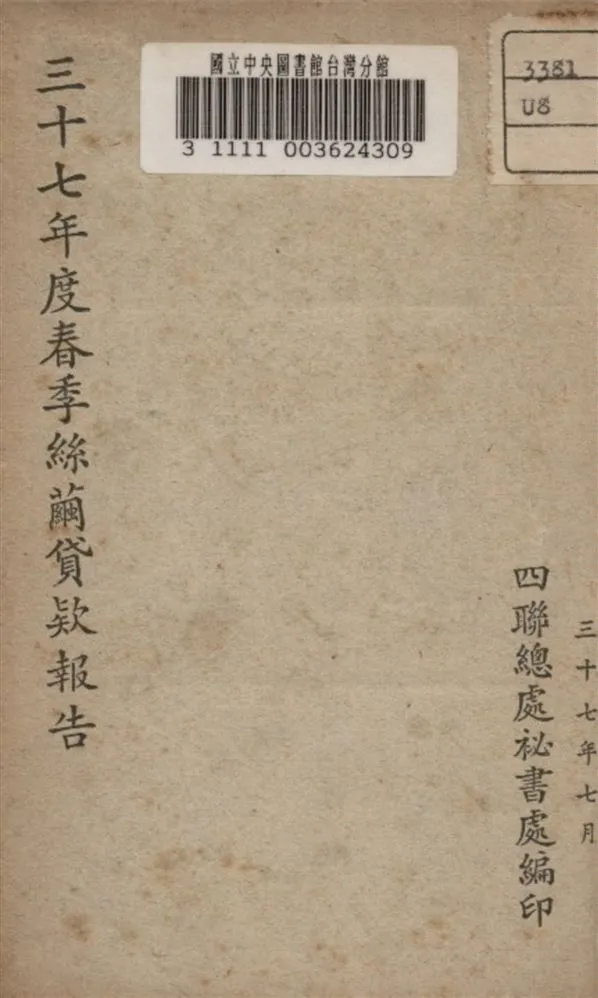 國立中央圖書館台灣分館
3 1111 003624309
3381
U8
三十七年度春季絲繭貸款報告
四聯總處祕書處編印
三十七年七月